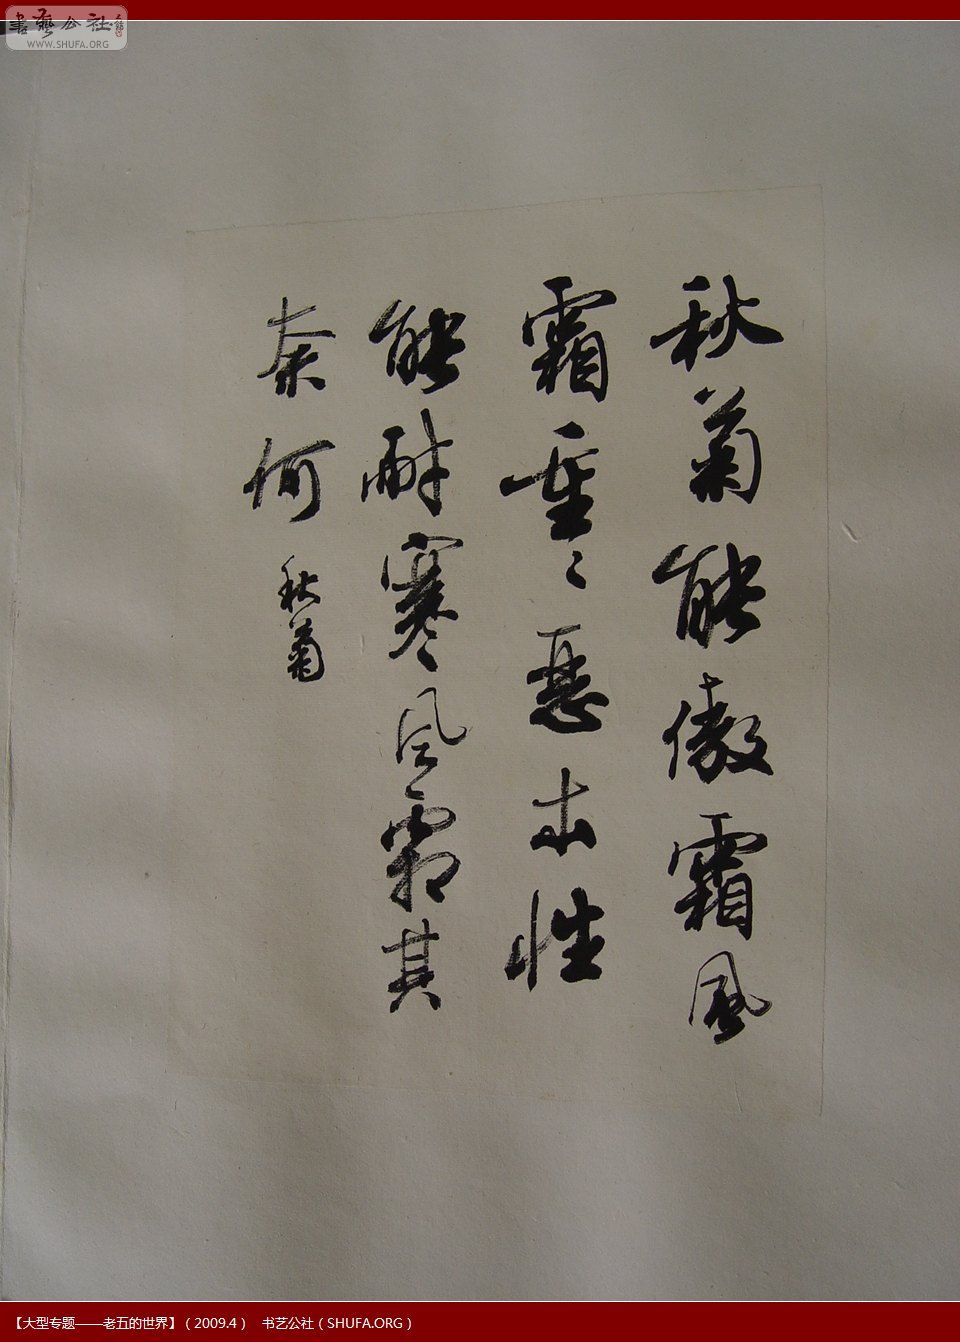 書藝公社
WWW.SHUFA.ORG
秋菊能傲霜風
霜重〻惡本性
能耐寒风霜其
奈何 秋菊
【大型专题——老五的世界】（2009.4） 书艺公社（SHUFA.ORG）